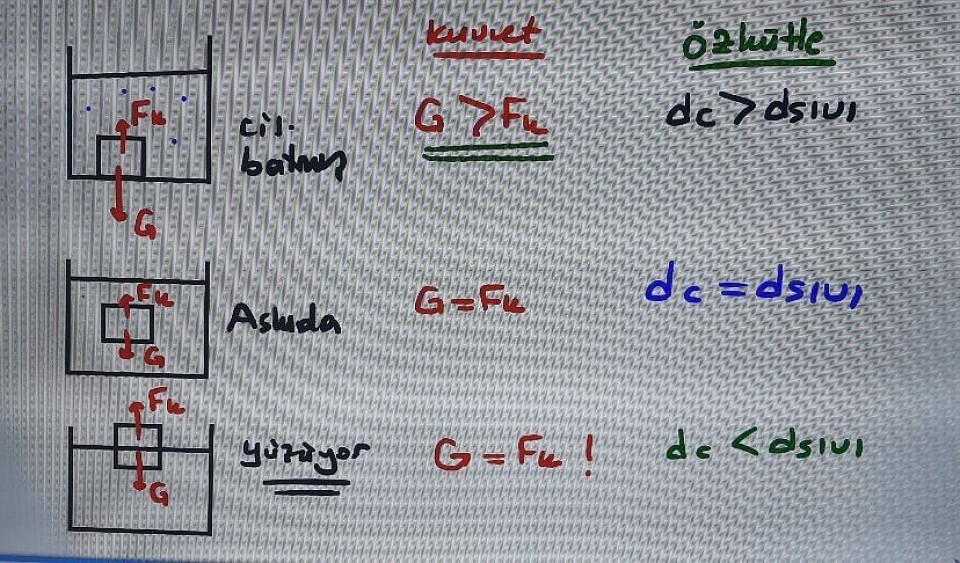 kuvvet
özkütle
Fk
G
cil.
batmış
G > Fk
dc > dsıvı
Fk
G
Askıda
G = Fk
dc = dsıvı
Fk
G
yüzüyor
G = Fk !
dc < dsıvı